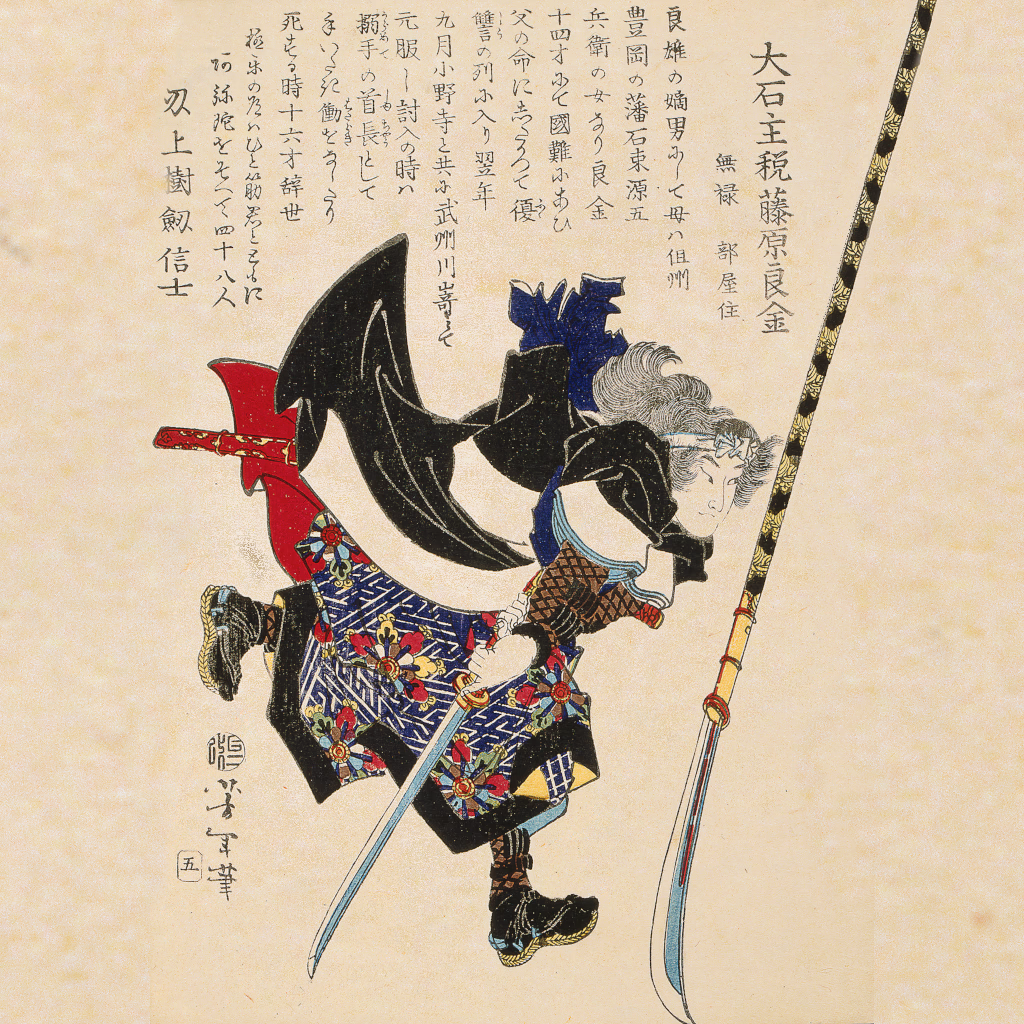 大石主税藤原良金
無禄 部屋住
良雄の嫡男にして母ハ但州
豊岡の藩石束源五
兵衛の女なり良金
十四才にて國難にあひ
父の命にしたがつて復
讐の列に入り翌年
九月小野寺と共に武州川嵜まて
元服し討入の時ハ
搦手の首長として
死する時十六才辞世
極楽の道ハひと筋君とともに
阿弥陀をそへて四十八人
刃上樹剱信士
芳年筆
五